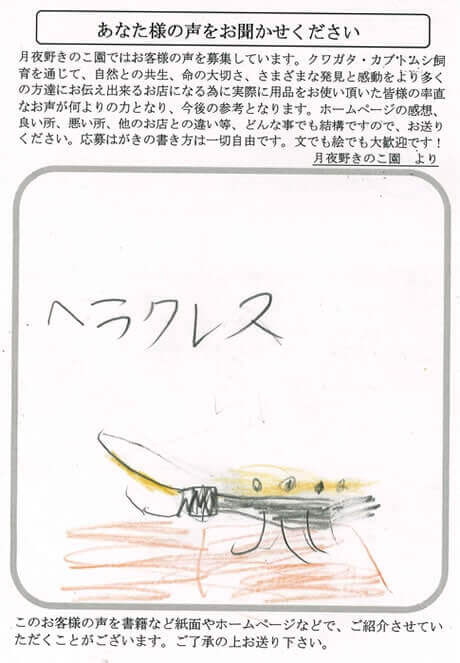 あなた様の声をお聞かせください
月夜野きのこ園ではお客様の声を募集しています。クワガタ・カブトムシ飼
育を通じて、自然との共生、命の大切さ、さまざまな発見と感動をより多く
の方達にお伝え出来るお店になる為に実際に用品をお使い頂いた皆様の率直
なお声が何よりの力となり、今後の参考となります。ホームページの感想、
良い所、悪い所、他のお店との違い等、どんな事でも結構ですので、お送り
ください。応募はがきの書き方は一切自由です。文でも絵でも大歓迎です！
月夜野きのこ園 より
ヘラクレス
このお客様の声を書籍など紙面やホームページなどで、ご紹介させてい
ただくことがございます。ご了承の上お送り下さい。